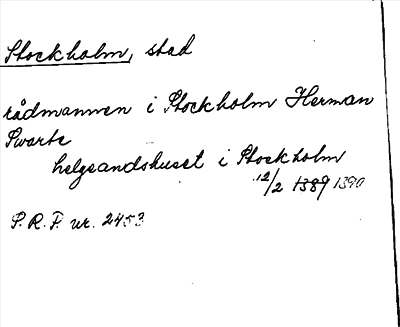 Stockholm, stad
rådmannen i Stockholm Herman
Swarte
helgeandshuset i Stockholm
12/2 1389 1390
S.R.F. nr. 2453